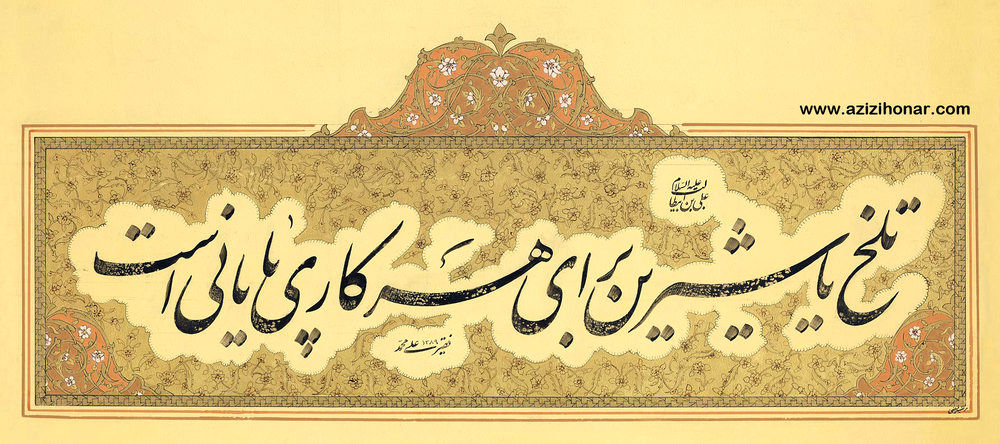 www.azizihonar.com
علی بن ابیطالب علیه السلام
تلخ یا شیرین برای هر کاری پایانی است
علیمحمد ۱۳۸۹